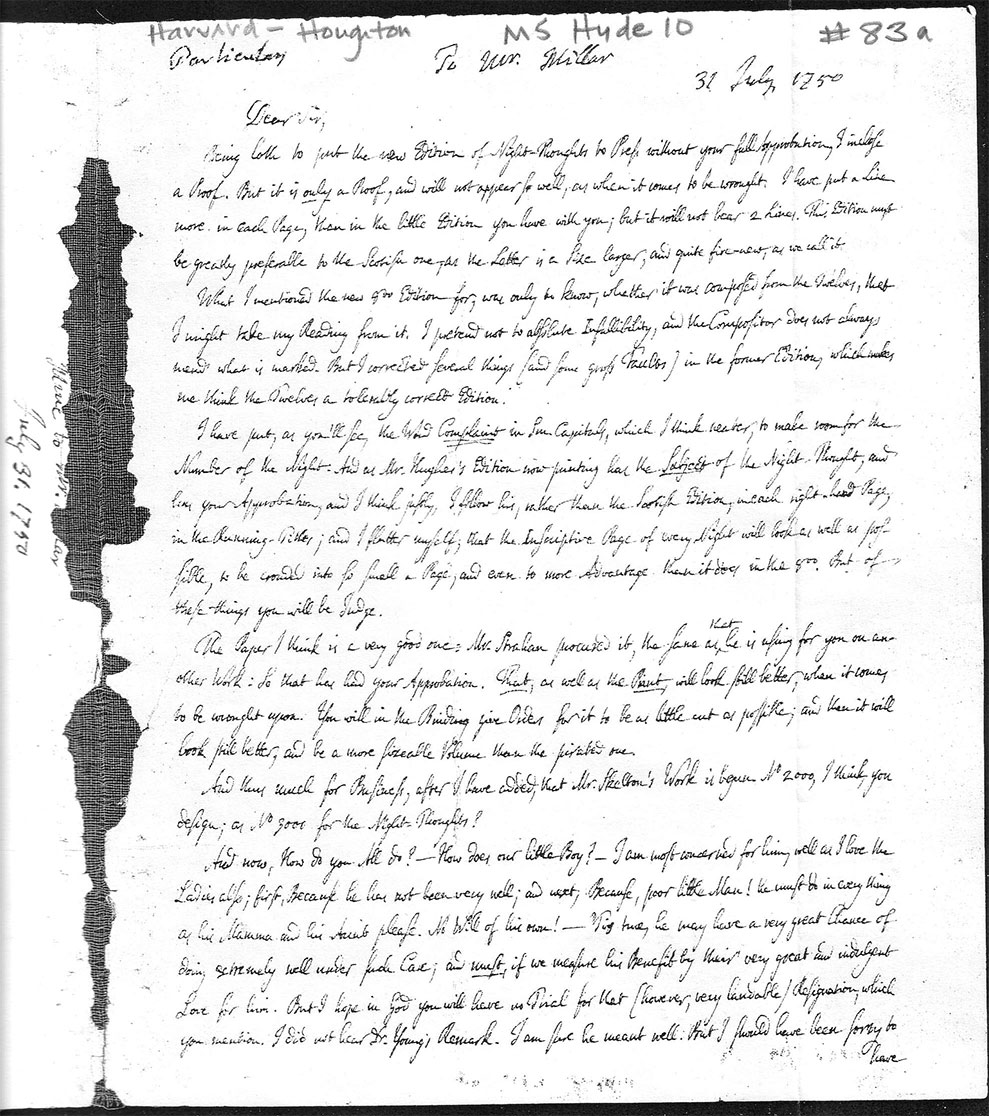 Harvard - Houghton MS Hyde 10 #83a
Particular To Mr. Millar
31 July, 1750
Dear Sir,
Being loth to put the new Edition of Night-Thoughts to Press without your full Approbation, I inclose
a Proof. But it is only a Proof, and will not appear so well, as when it comes to be wrought. I have put a Line
more in each Page, than in the little Edition you have with you; but it will not bear 2 Lines. This Edition must
be greatly preferable to the Scotish one, as the Letter is a Size larger, and quite fire-new, as we call it.
What I mentioned the new 8vo Edition for, was only to know, whether it was composed from the Twelves, that
I might take my Reading from it. I pretend not to absolute Infallibility, and the Compositor does not always
mend what is marked. But I corrected several things (and some gross Faults) in the former Edition, which makes
me think the Twelves a tolerably correct Edition.
I have put, as you'll see, the Word Complaint in Sm. Capitals, which I think neater, to make room for the
Number of the Night: And as Mr. Hughes's Edition now printing has the Subject of the Night-Thought, and
has your Approbation, and I think justly, I follow his, rather than the Scotish Edition, in each right-hand Page,
in the Running-Titles; and I flatter myself, that the Inscriptive Page of every Night will look as well as pos-
sible, to be crouded into so small a Page, and even to more Advantage than it does in the 8vo. But of
these things you will be Judge.
The Paper I think is a very good one: Mr. Strahan procured it, the same as that he is using for you on an-
other Work: So that has had your Approbation. That, as well as the Print, will look still better, when it comes
to be wrought upon. You will in the Binding give Orders for it to be as little cut as possible; and then it will
look still better, and be a more sizeable Volume than the pirated one.
And thus much for Business, after I have added, that Mr. Skelton's Work is begun No 2000, I think, you
design; as No 3000 for the Night-Thoughts?
And now, How do you All do? — How does our little Boy? — I am most concerned for him, well as I love the
Ladies also; first, Because he has not been very well; and next, Because, poor little Man! he must do in every thing
as his Mamma and his Aunts please. No Will of his own! — 'Tis true, he may have a very great Chance of
doing extremely well under such Care; and must, if we measure his Benefit by their very great and indulgent
Love for him. But I hope in God you will have no Trial for that (however, very laudable) Resignation, which
you mention. I did not hear Dr. Young's Remark. I am sure he meant well. But I should have been sorry to
have
July 31. 1750